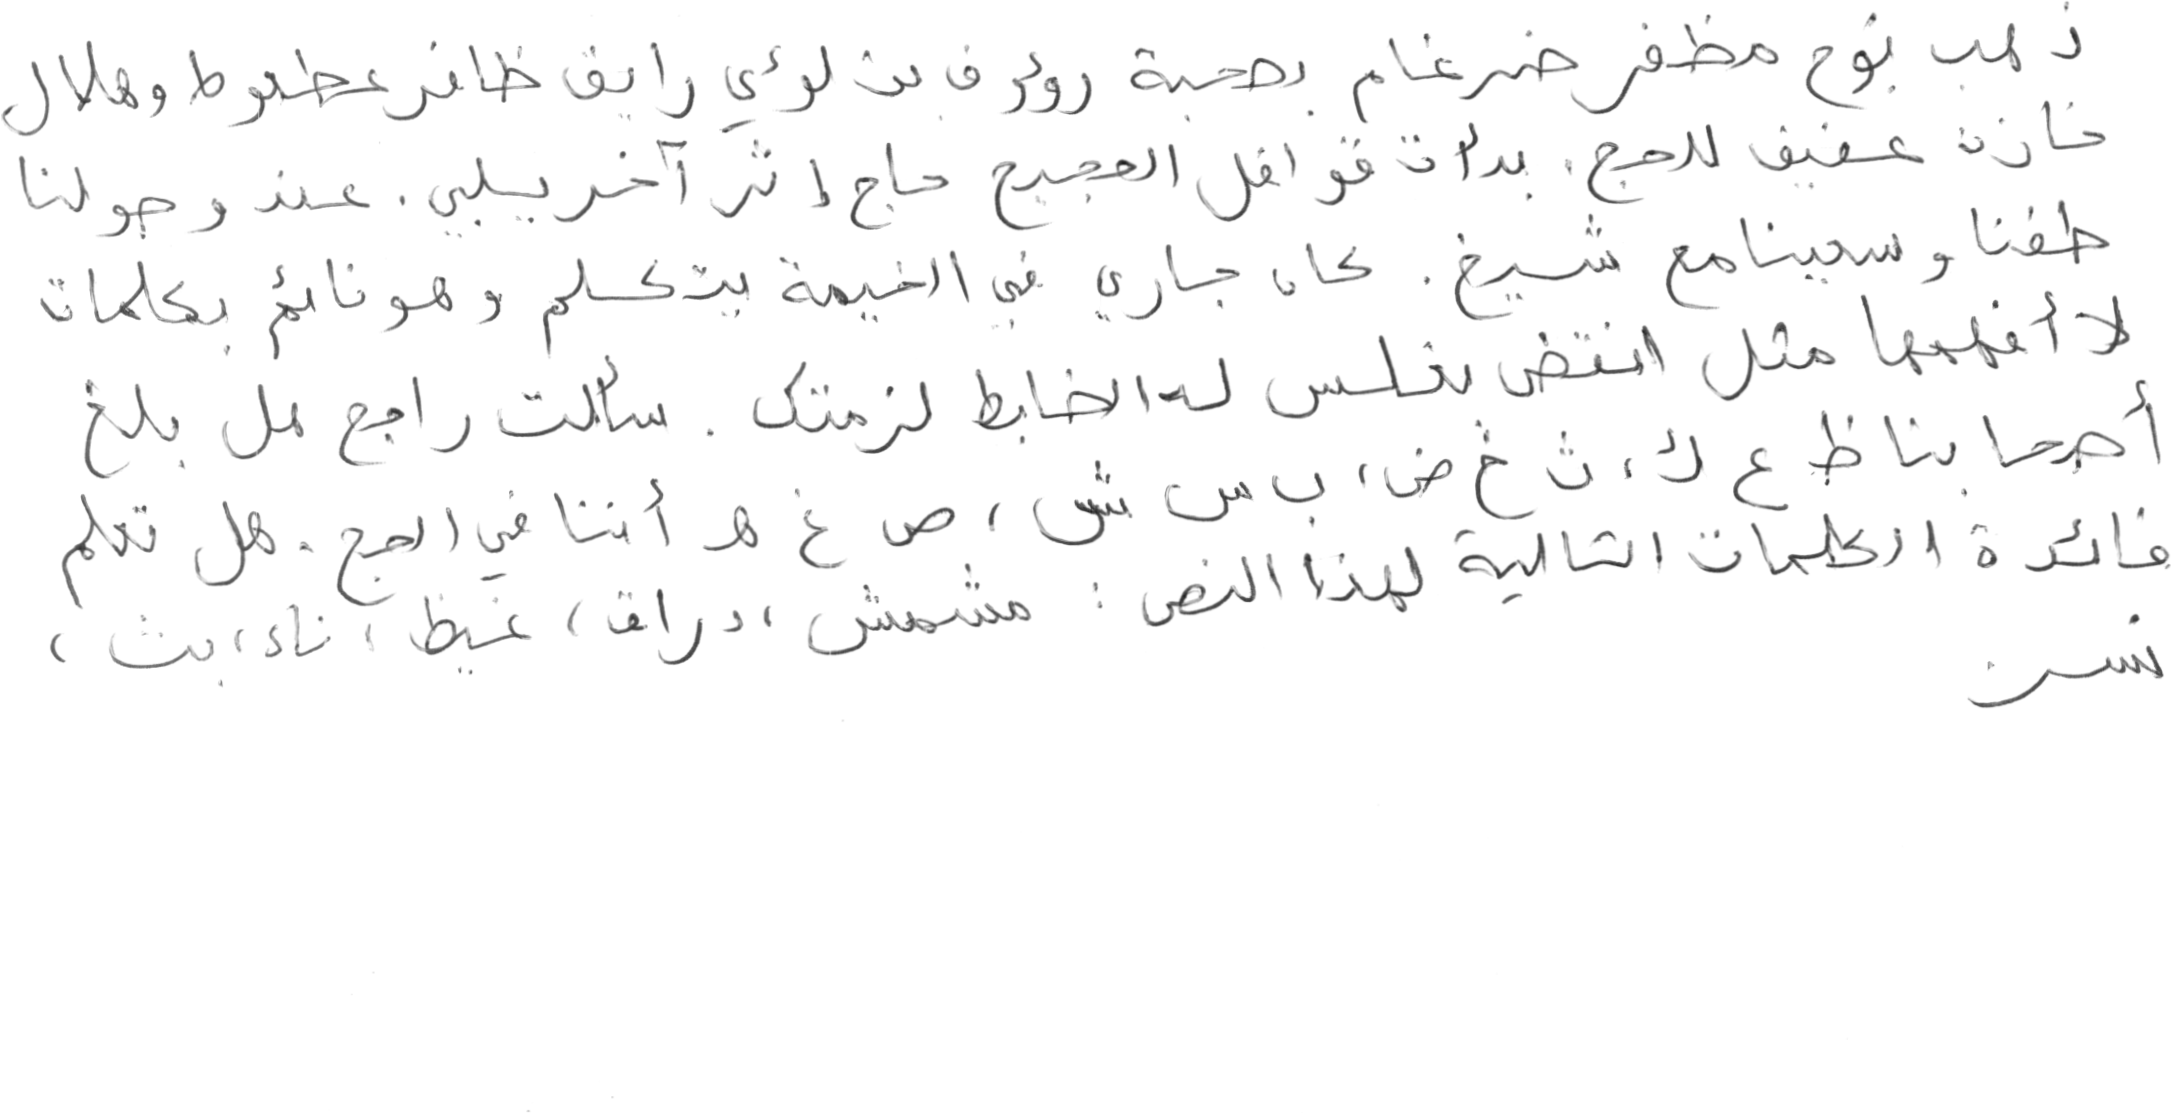 ذهب نوح مظفر ضرغام بصحبة رؤوف بن لؤي رايق ظافر عطعوط وهلال
خازن عفيف للحج. بدأت قوافل الحجيج حاج إثر آخر يلبي. عند وصولنا
طفنا وسعينا مع شيخ. كان جاري في الخيمة يتكلم وهو نائم بكلمات
لا أفهمها مثل انتفض نغلس له الضابط لزمتك. سألت راجح هل بلغ
أصحابنا ظ ع ك، ث خ ض، ب س ش، ص غ هـ أننا في الحج. هل تعلم
فائدة الكلمات التالية لهذا النص: مشمش، دراق، غيظ، ناء، بث،
نسر